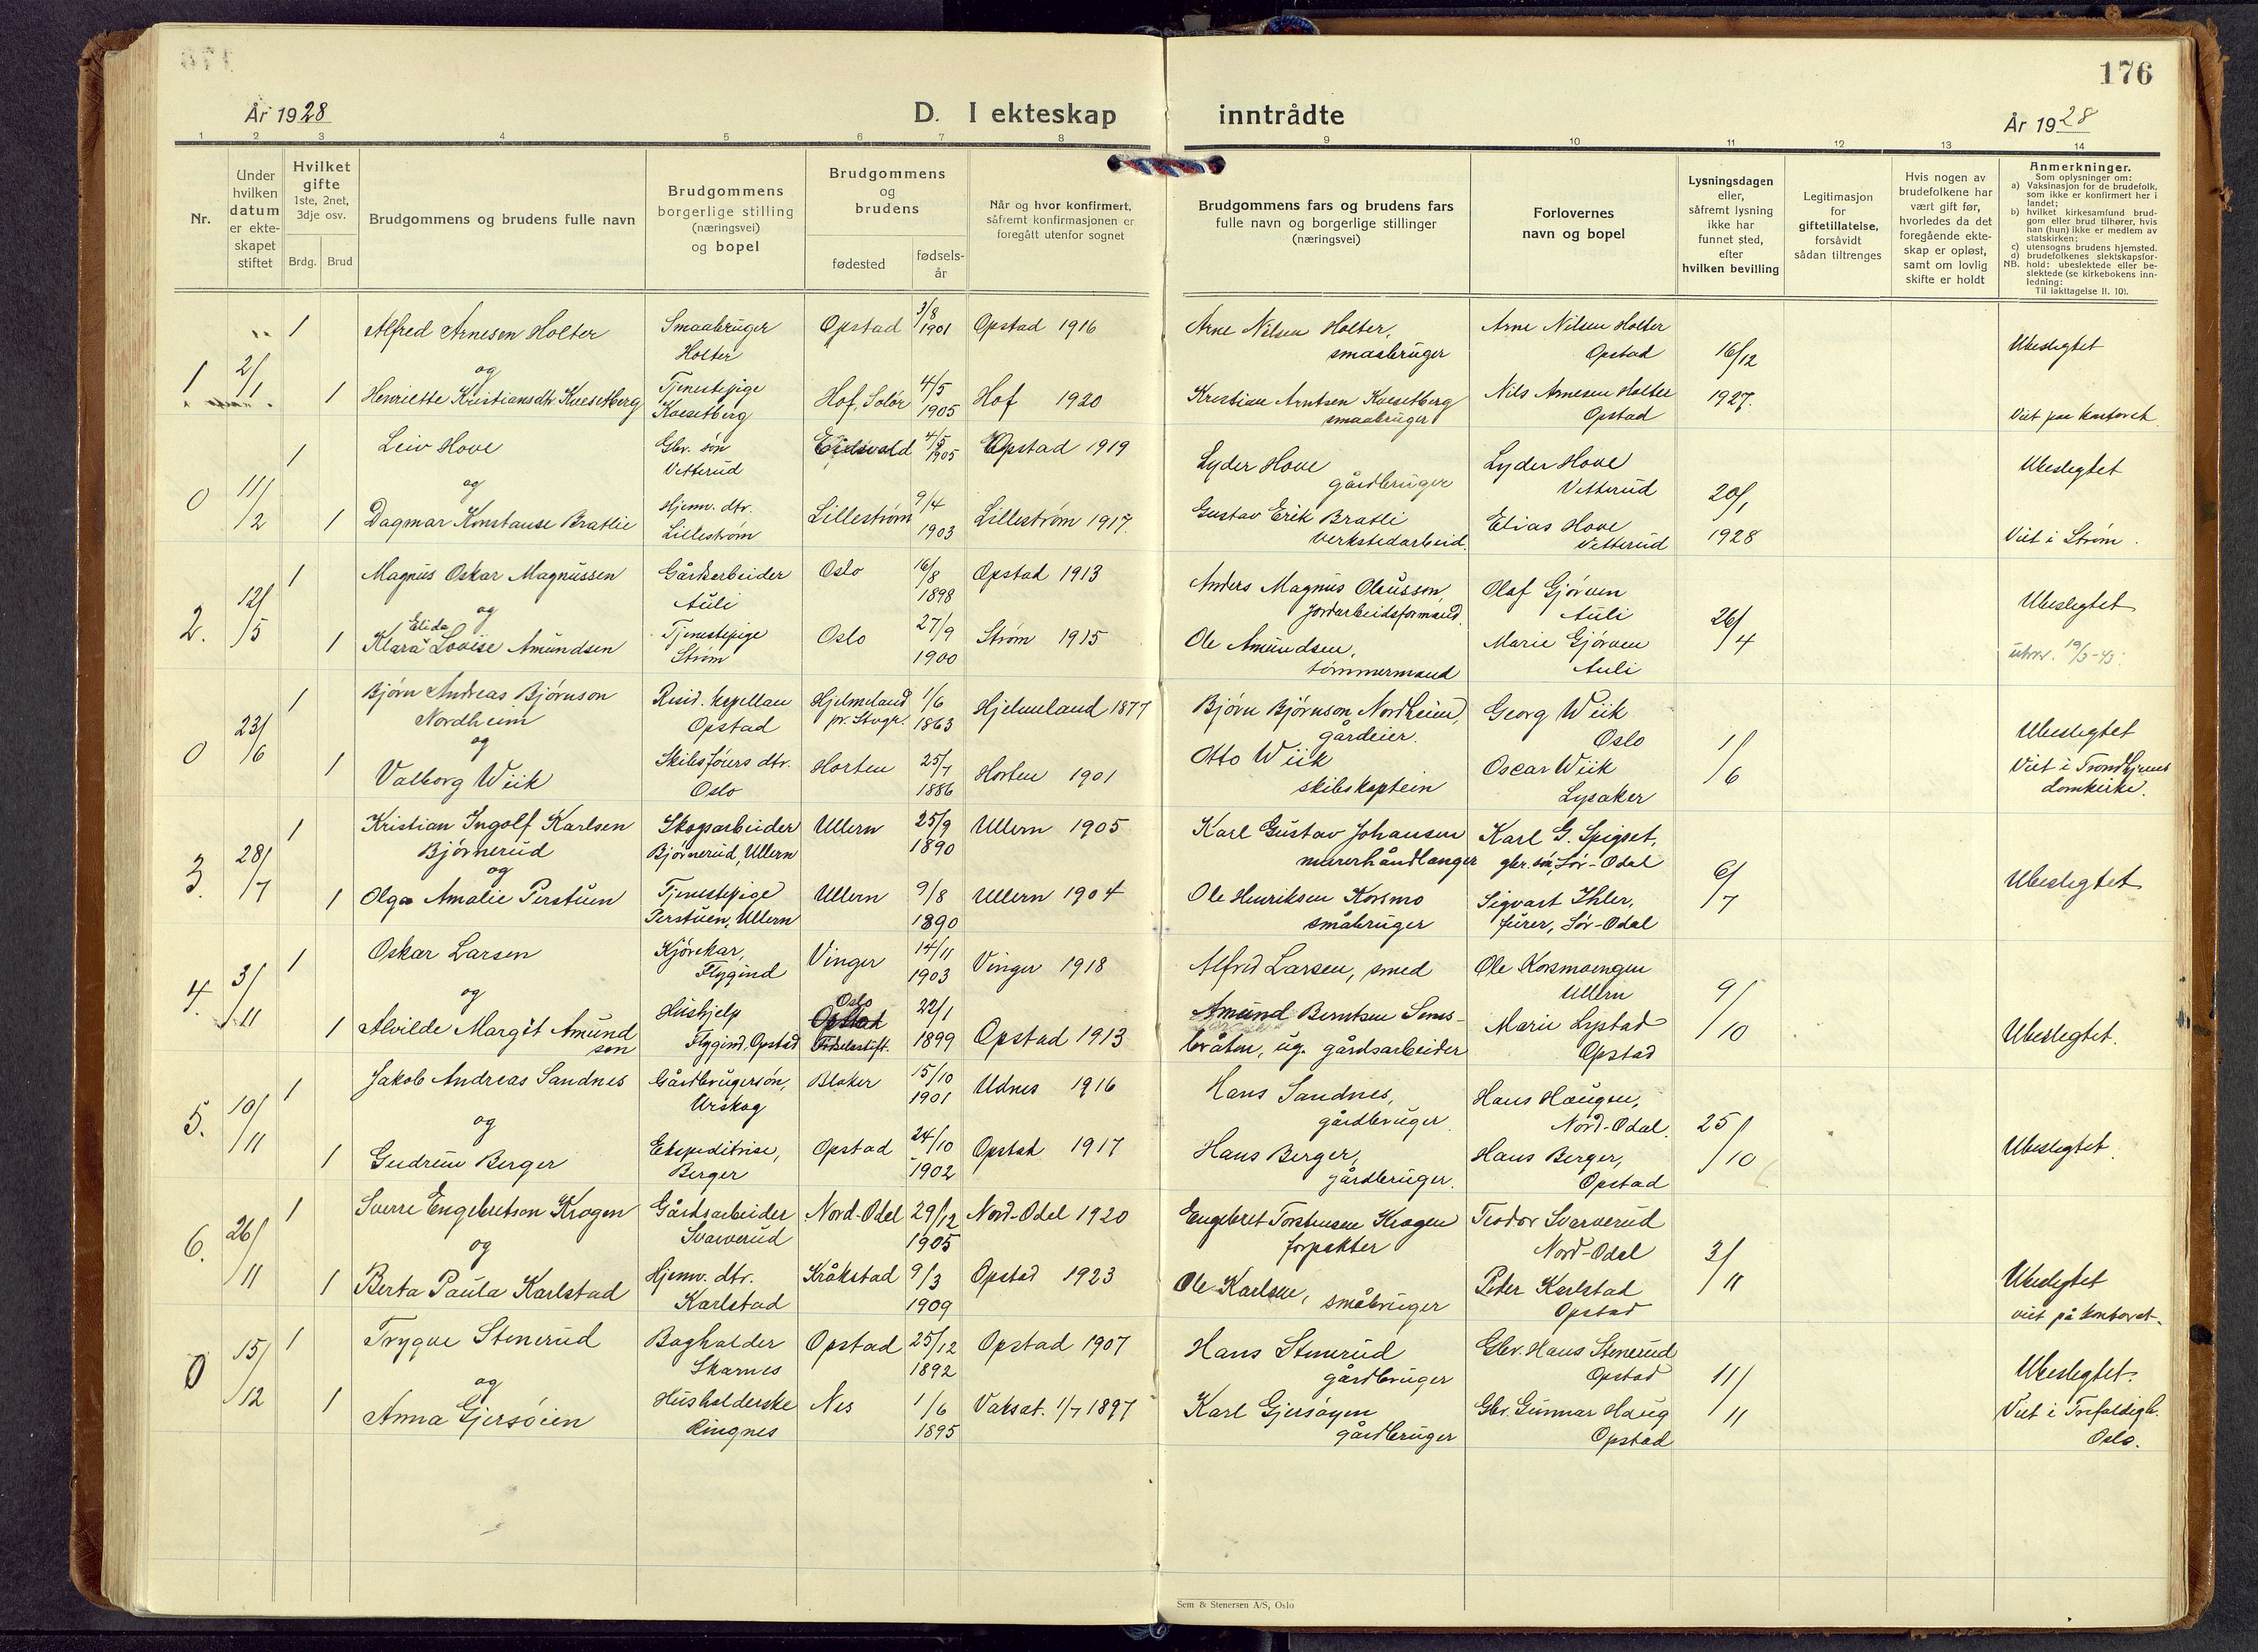 176
År 1928
D. I ekteskap inntrådte
År 1928
1 2 3 4 5 6 7 8 9 10 11 12 13 14
Nr.
Under hvilken datum er ekte-skapet stiftet
Hvilket gifte
1ste, 2net, 3dje osv.
Brdg. Brud
Brudgommens og brudens fulle navn
Brudgommens borgerlige stilling (næringsvei) og bopel
Brudgommens og brudens
fødested
fødsels-år
Når og hvor konfirmert, såfremt konfirmasjonen er foregått utenfor sognet
Brudgommens fars og brudens fars fulle navn og borgerlige stillinger (næringsvei)
Forlovernes navn og bopel
Lysningsdagen eller, såfremt lysning ikke har funnet sted, efter hvilken bevilling
Legitimasjon for giftetillatelse, forsåvidt sådan tiltrenges
Hvis nogen av brudefolkene har vært gift før, hvorledes da det foregående ekte-skap er opløst, samt om lovlig skifte er holdt
Anmerkninger.
Som oplysninger om:
a) Vaksinasjon for de brudefolk, som ikke er konfirmert her i landet;
b) hvilket kirkesamfund brud-gom eller brud tilhører, hvis han (hun) ikke er medlem av statskirken;
c) utensogns brudens hjemsted.
d) brudefolkenes slektskapsfor-hold: ubeslektede eller be-slektede (se kirkebokens inn-ledning:
NB. Til iakttagelse II. 10).
1 2/1 1 Alfred Arnesen Holter Smaabruger Holter Opstad 3/8 1901 Opstad 1916 Arne Nilsen Holter, smaabruger Arne Nilsen Holter Opstad 16/12 Ubeslegtet
og
1 Henriette Kristiansdtr. Kvesetberg Tjenestepige Kvesetberg Hof, Solør 4/5 1905 Hof 1920 Kristian Arntsen Kvesetberg smaabruger Nils Arnesen Holter Opstad 1927. Viet paa kontoret
0 11/2 1 Leiv Hove Gbr. søn Vetterud Eidsvold 4/5 1905 Opstad 1919 Lyder Hove gårdbruger Lyder Hove Vetterud 20/1 Ubeslegtet
og
1 Dagmar Konstanse Bratlie Hjemv. dtr. Lillestrøm Lillestrøm 9/4 1903 Lillestrøm 1917. Gustav Erik Bratli verkstedarbeid. Elias Hove Vetterud 1928 Viet i Strøm.
2. 12/5 1 Magnus Oskar Magnussen Gårdsarbeider Auli Oslo 16/8 1898 Opstad 1913 Anders Magnus Olausson, jordarbeidsformand. Olaf Gjørven Auli 26/4 Ubeslegtet
og
1 Klara Elida Lovise Amundsen Tjenestepige Strøm Oslo 27/9 1900 Strøm 1915 Ole Amundsen, tømmermand Marie Gjørven Auli
0 23/6 1 Bjørn Andreas Bjørnson Nordheim Resid. kapellan Opstad Hjelmeland pr. Stvgr. 1/6 1863 Hjelmeland 1877 Bjørn Bjørnson Nordheim, gårdeier. Georg Wiik Oslo 1/6 Ubeslegtet
og
1 Valborg Wiik Skibsførers dtr. Oslo Horten 25/7 1886 Horten 1901 Otto Wiik skibskaptein Oscar Wiik Lysaker Viet i Trondhjems domkirke.
3. 28/7 1 Kristian Ingolf Karlsen Bjørnerud Skogsarbeider Bjørnerud, Ullern Ullern 25/9 1890 Ullern 1905 Karl Gustav Johansen murerhåndlanger Karl G. Spigset, gbr. søn, Sør-Odal 6/7 Ubeslegtet
og
1 Olga Amalie Perstuen Tjenestepige Perstuen, Ullern Ullern 9/8 1890 Ullern 1904 Ole Henriksen Korsmo småbruger Sigvart Ihler, furer, Sør-Odal
4. 3/11 1 Oskar Larsen Kjørekar, Flygind Vinger 14/11 1903 Vinger 1918 Alfred Larsen, smed Ole Korsmoengen Ullern 9/10 Ubeslegtet.
og
1 Alvilde Margit Amundsen Hushjelp Flygind, Opstad Oslo Opstad Fødselsstift. 22/1 1899 Opstad 1913 Amund Berntsen Sems-bråten, ug. gårdsarbeider Marie Lystad Opstad
5. 10/11 1 Jakob Andreas Sandnes Gårdbrugersøn, Urskog Blaker 15/10 1901 Udnes 1916 Hans Sandnes, gårdbruger. Hans Haugen, Nord-Odal. 25/10 Ubeslegtet.
og
1 Gudrun Berger Ekspeditrise, Berger Opstad 24/10 1902 Opstad 1917 Hans Berger, gårdbruger. Hans Berger, Opstad
6. 26/11 1 Sverre Engebretsen Krogen Gårdsarbeider Svarverud Nord-Odal 29/12 1905 Nord-Odal 1920 Engebret Torstensen Krogen forpakter Teodor Svarverud Nord-Odal 3/11 Ubeslegtet
og
1 Berta Paula Karlstad Hjemv. dtr. Karlstad Kråkstad 9/3 1909 Opstad 1923 Ole Karlsen, småbruger Peter Karlstad Opstad viet på kontoret.
0 15/12 1 Trygve Stenerud Bagholder Skarnes Opstad 25/12 1892 Opstad 1907 Hans Stenerud gårdbruger Gbr. Hans Stenerud Opstad 11/11 Ubeslegtet.
og
1 Anna Gjersøien Husholderske Ringnes Nes 1/6 1895 Vaksat. 1/7 1897 Karl Gjersøyen gårdbruger Gbr. Gunnar Haug Opstad Viet i Trefoldigh. Oslo.
Sem & Stenersen A/S, Oslo